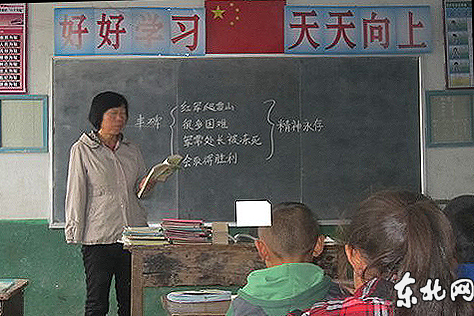 好好学习
天天向上
丰碑
红军爬雪山
很多困难
军需处长被冻死
会取得胜利
精神永存
东北网